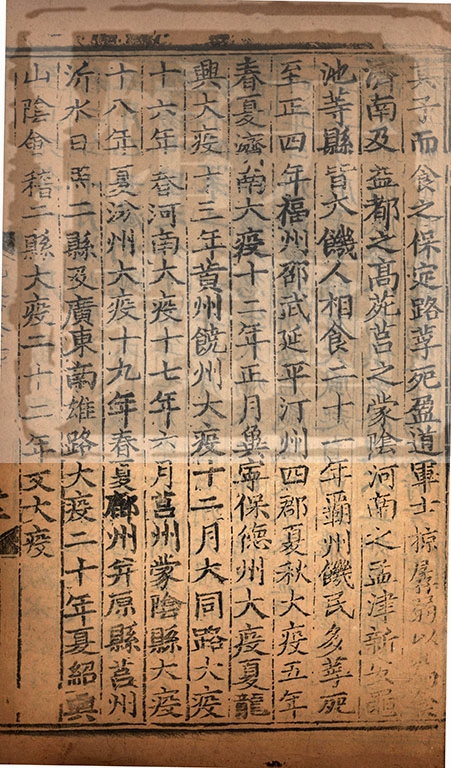 其子而食之保定路莩死盈道軍士掠孱弱以為食
濟南及益都之高苑莒之蒙陰河南之孟津新安黽
池等縣皆大饑人相食二十一年霸州饑民多莩死
至正四年福州邵武延平汀州四郡夏秋大疫五年
春夏濟南大疫十二年正月冀寧保德州大疫夏龍
興大疫十三年黄州饒州大疫十二月大同路大疫
十六年春河南大疫十七年六月莒州蒙陰縣大疫
十八年夏汾州大疫十九年春夏鄜州并原縣莒州
沂水日照二縣及廣東南雄路大疫二十年夏紹興
山陰會稽二縣大疫二十二年又大疫